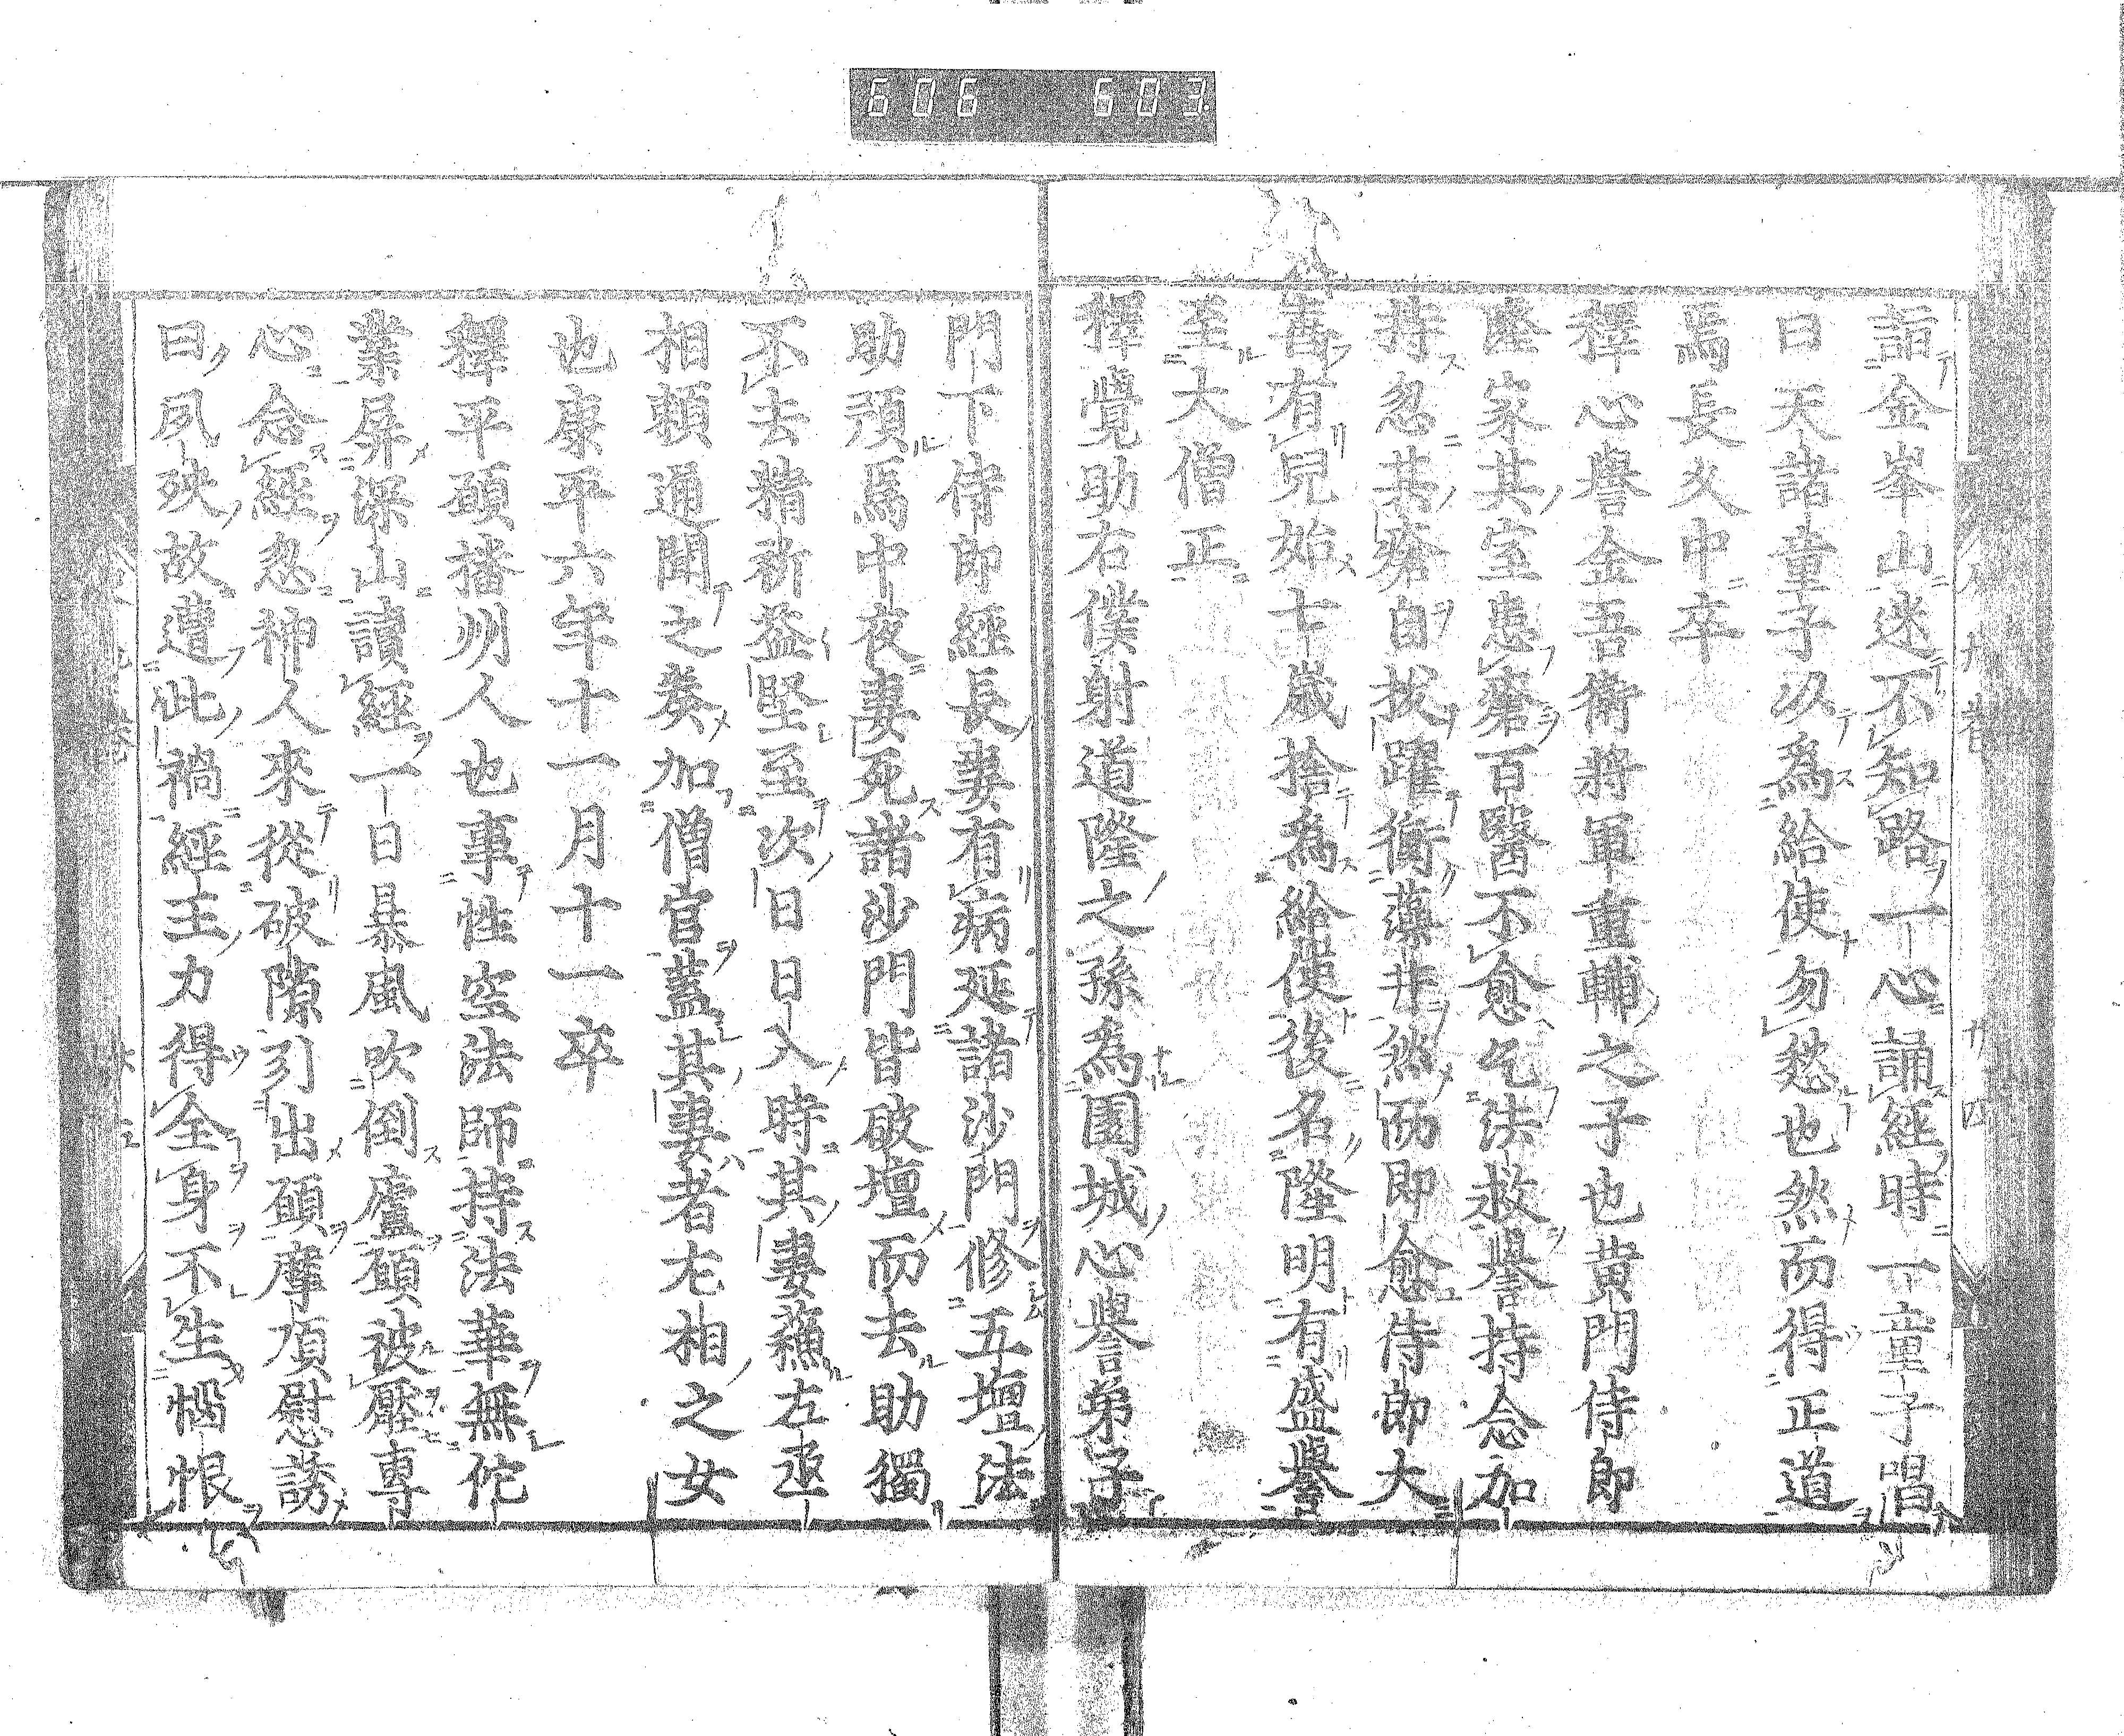 606 603
詣金峯山迷不知路一心誦經時一童子唱
曰天諸童子以爲給使勿愁也然而得正道
焉長久中卒
釋心譽金吾衛將軍重輔之子也黄門侍郎
隆家其室患瘡百醫不愈乞法救譽持念加
持忽其瘡自拔躍衡藻井然而即愈侍郎大
喜有兒始七歳捨為給使後名隆明有盛譽
至大僧正
釋覺助右僕射道隆之孫為園城心譽弟子
門下侍郎經長妻有病延諸沙門修五壇法
助預焉中夜妻死諸沙門皆破壇而去助獨
不去精祈益堅至次日日入時其妻蘓左丞
相頼通聞之奏加僧官蓋其妻者左相之女
也康平六年十一月十一卒
釋平願播州人也事性空法師持法華無佗
業屏深山讀經一日暴風吹倒廬願被壓專
心念經忽神人來從破隙引出願摩頂慰誘
曰夙殃故遭此禍經王力得全身不生惱恨